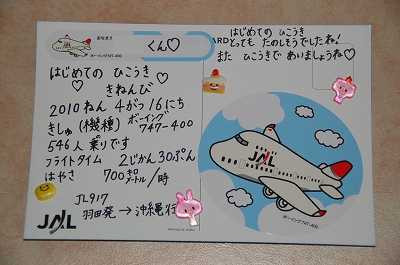 おなまえ
くん♡
ボーイング747-400
はじめての ひこうき
♡ きねんび ♡
2010ねん 4がつ16にち
きしゅ(機種) ボーイング
747-400
546人乗りです
フライトタイム 2じかん30ぷん
はやさ 700キロメートル/時
JL917
羽田発→沖縄行
JAL
PRINTED IN JAPAN
ARD
はじめての ひこうき
とっても たのしそうでしたね!
また ひこうきで あいましょうね♡
JAL
ボーイング747-400